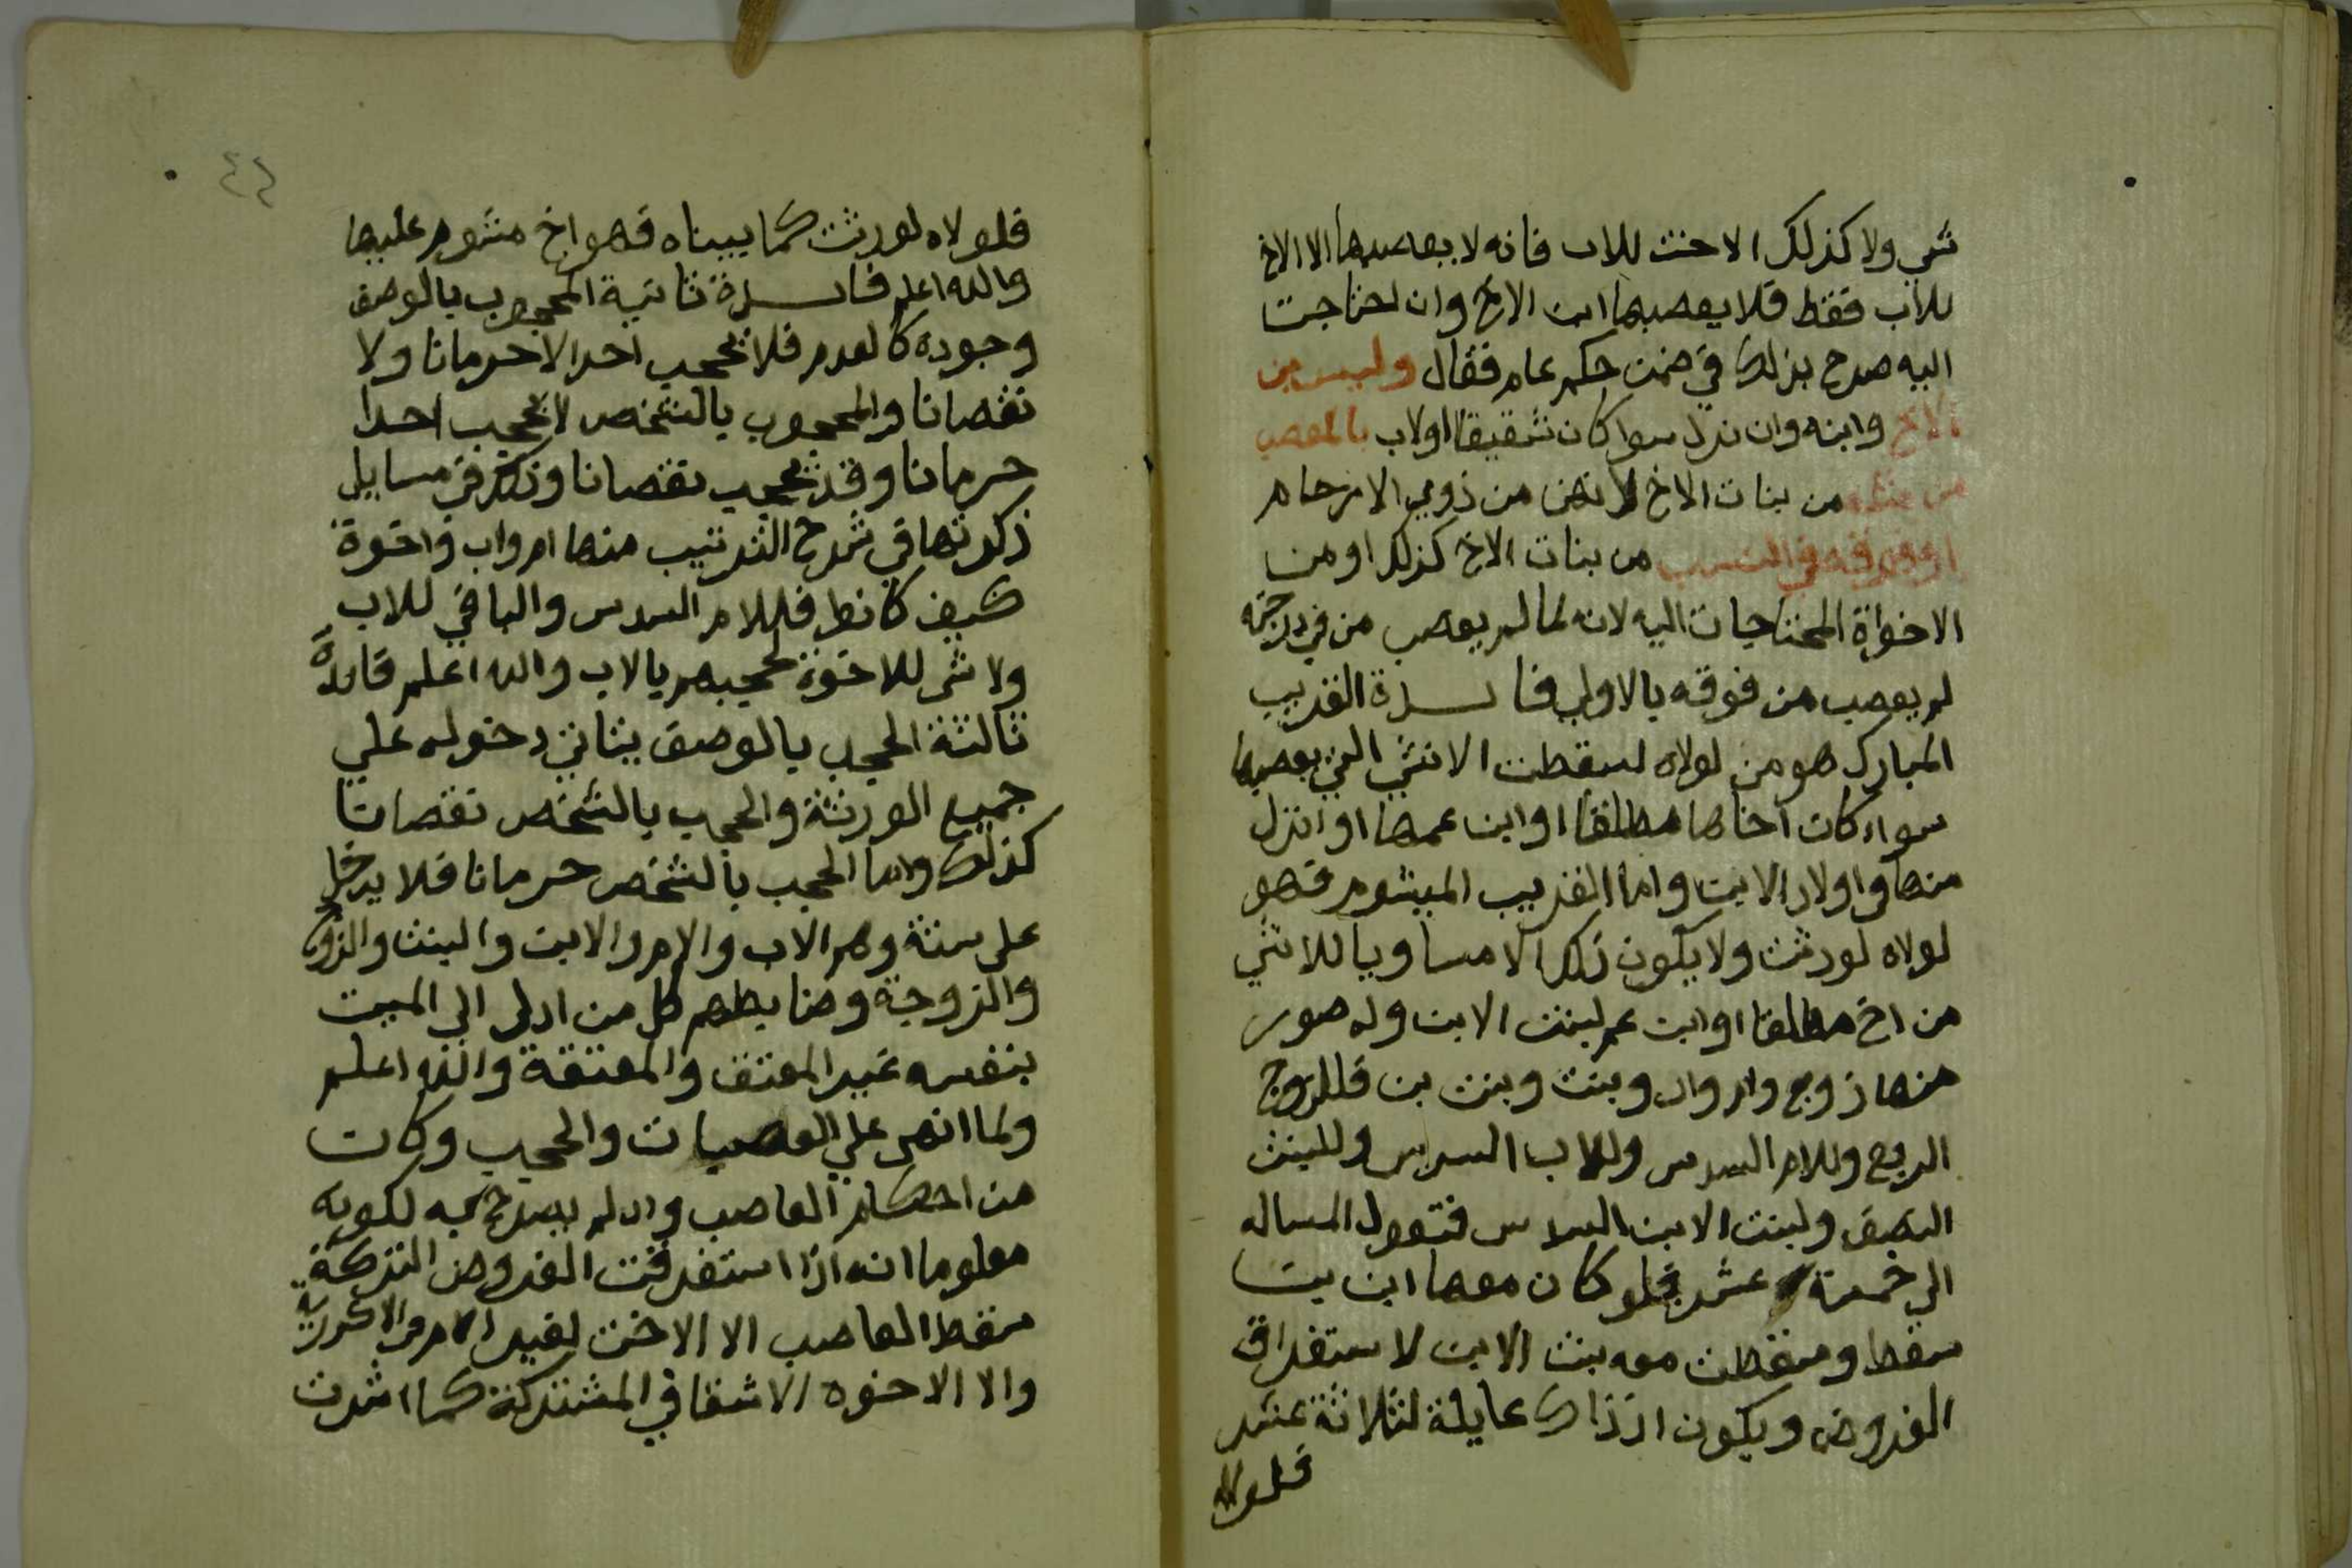 شي ولا كذلك الاخت للاب فانه لا يعصبها الا الاخ
للاب فقط فلا يعصبها ابن الاخ وان احتاجت
اليه صرح بذلك في ضمن حكم عام فقال وليس من
الاخ وابنه وان نزل سوا كان شقيقا اولاب بالمعصب
من مثله من بنات الاخ لانهن من ذوي الارحام
او من فوقه في النسب من بنات الاخ كذلك او من
الاخواة المحتاجات اليه لانه لما لم يعصب من في درجته
لم يعصب من فوقه بالاولي فايدة القريب
المبارك هو من لولاه لسقطت الانثي التي يعصبها
سواء كان اخاها مطلقا او ابن عمها او انزل
منها واولاد الابن واما القريب المبشوم فهو
لولاه لورثت ولا يكون ذلك الا مساويا للانثي
من اخ مطلقا او ابن عم لبنت الابن وله صور
منها زوج وام واب وبنت وبنت بن فللزوج
الربع وللام السدس وللاب السدس وللبنت
النصف ولبنت الابن السدس فتعول المساله
الي خمسة عشر فلو كان معها ابن بن
سقط وسقطت معه بنت الابن لاستغراق
الفروض ويكون اذ ذاك عايلة لثلاثة عشر
فلولاه
٤٢
فلولاه لورثت كما بيناه فهو اخ مشوم عليها
والله اعلم فايدة ثانية المحجوب بالوصف
وجوده كالعدم فلا يحجب احدا لا حرمانا ولا
نقصانا والمحجوب بالشخص لا يحجب احدا
حرمانا وقد يحجب نقصانا وذلك في مسايل
ذكرتها في شرح الترتيب منها ام واب واخوة
كيف كانوا فللام السدس والباقي للاب
ولا شي للاخوة لحجبهم بالاب والله اعلم فايدة
ثالثة الحجب بالوصف يتاتي دخوله علي
جميع الورثة والحجب بالشخص نقصانا
كذلك واما الحجب بالشخص حرمانا فلا يدخل
علي ستة وهم الاب والام والابن والبنت والزوج
والزوجة وضابطهم كل من ادلي الي الميت
بنفسه غير المعتق والمعتقة والله اعلم
ولما انهي علي العصبات والحجب وكان
من احكام العاصب وان لم يصرح به لكونه
معلوما انه اذا استغرقت الفروض التركة
سقط العاصب الا الاخت لغير الام في الاكدرية
والا الاخوه الاشقا في المشتركة كما اشرت